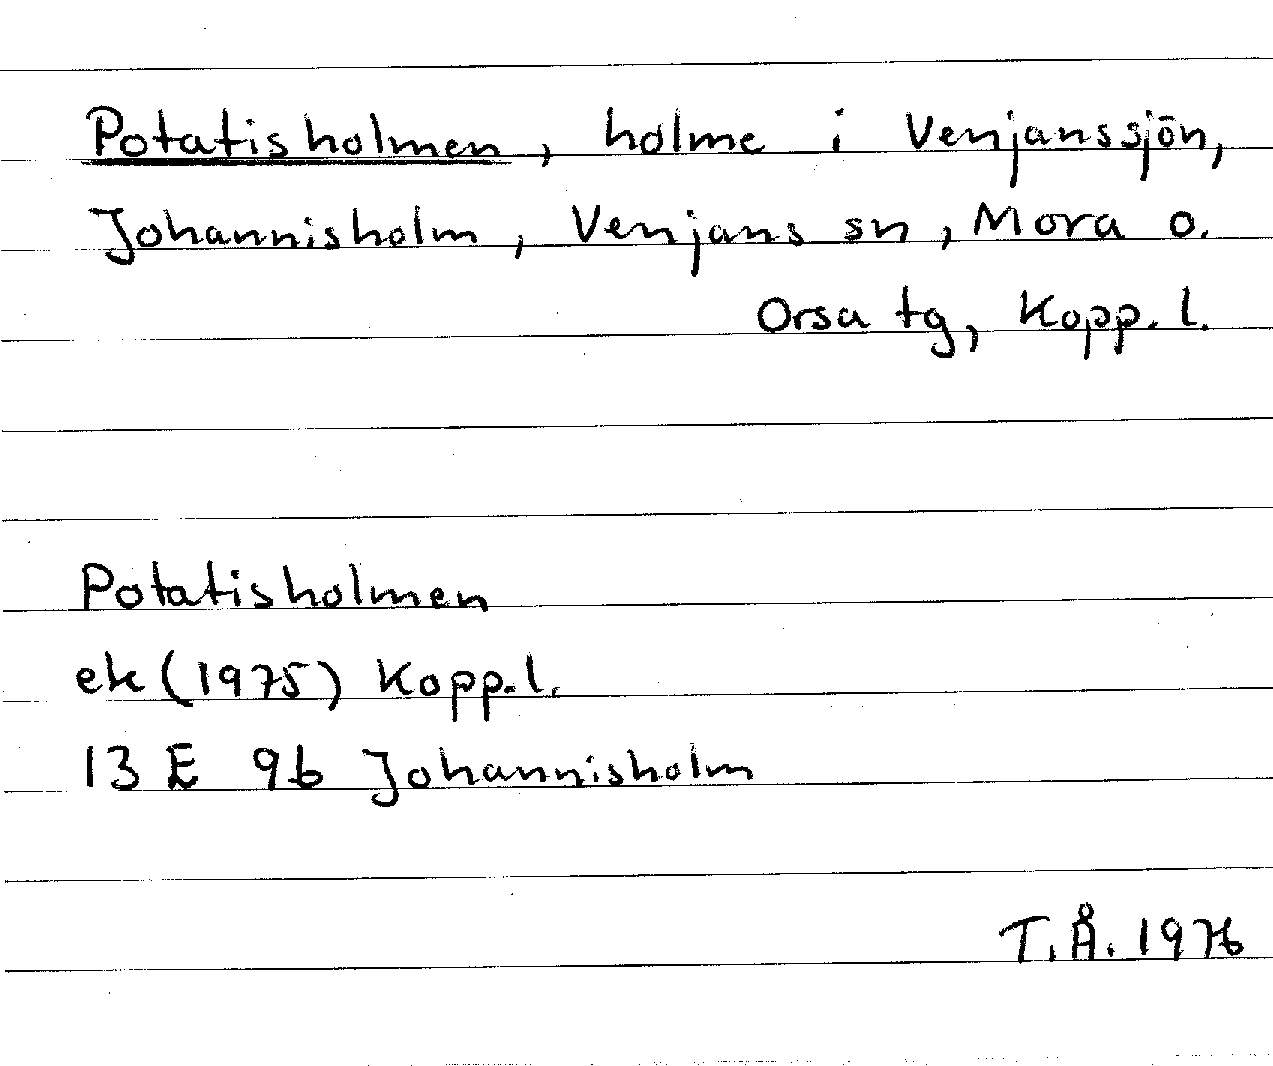 Potatisholmen, holme i Venjanssjön,
Johannisholm, Venjans sn, Mora o.
Orsa tg, Kopp. l.
Potatisholmen
ek (1975) Kopp. l.
13 E 9b Johannisholm
T.Å. 1976